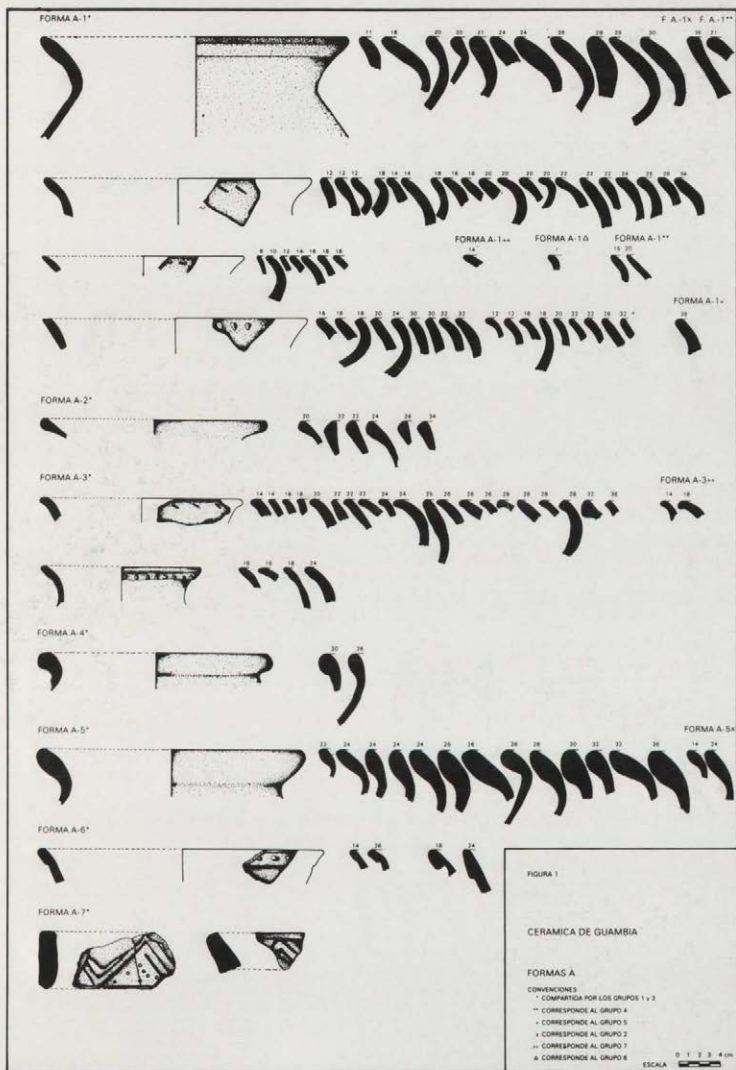 FORMA A-1* F. A.-1x F. A.-1**
11 18 20 20 21 24 24 26 28 29 30 30 21
12 12 12 18 14 16 18 18 18 20 20 20 20 22 22 22 24 25 29 29 34
FORMA A-1++ FORMA A-1Δ FORMA A-1**
8 10 12 14 16 18 18 14 15 20
FORMA A-1+
16 18 18 20 24 30 30 32 32 12 12 16 18 20 22 22 26 32
FORMA A-2*
20 22 22 24 26 34
FORMA A-3* FORMA A-3++
14 14 16 18 20 22 22 22 24 24 26 26 26 26 26 28 28 28 28 32 36 14 18
16 16 18 24
FORMA A-4*
30 26
FORMA A-5* FORMA A-5x
22 24 24 24 24 26 26 28 28 30 32 33 36 14 24
FORMA A-6*
14 26 18 24
FORMA A-7*
FIGURA 1
CERAMICA DE GUAMBIA
FORMAS A
CONVENCIONES:
* COMPARTIDA POR LOS GRUPOS 1 y 3
** CORRESPONDE AL GRUPO 4
+ CORRESPONDE AL GRUPO 5
x CORRESPONDE AL GRUPO 2
++ CORRESPONDE AL GRUPO 7
Δ CORRESPONDE AL GRUPO 6
ESCALA 0 1 2 3 4 cm